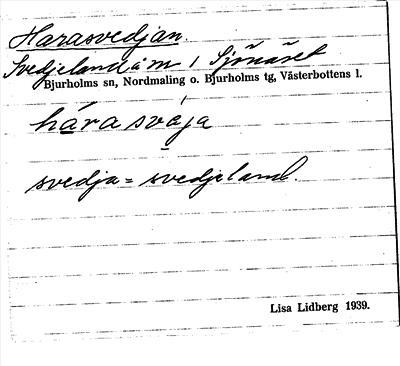 Harasvedjan.
Svedjeland å m i Sjönäset
Bjurholms sn, Nordmaling o. Bjurholms tg, Västerbottens l.
hárasvàja
svedja = svedjeland.
Lisa Lidberg 1939.